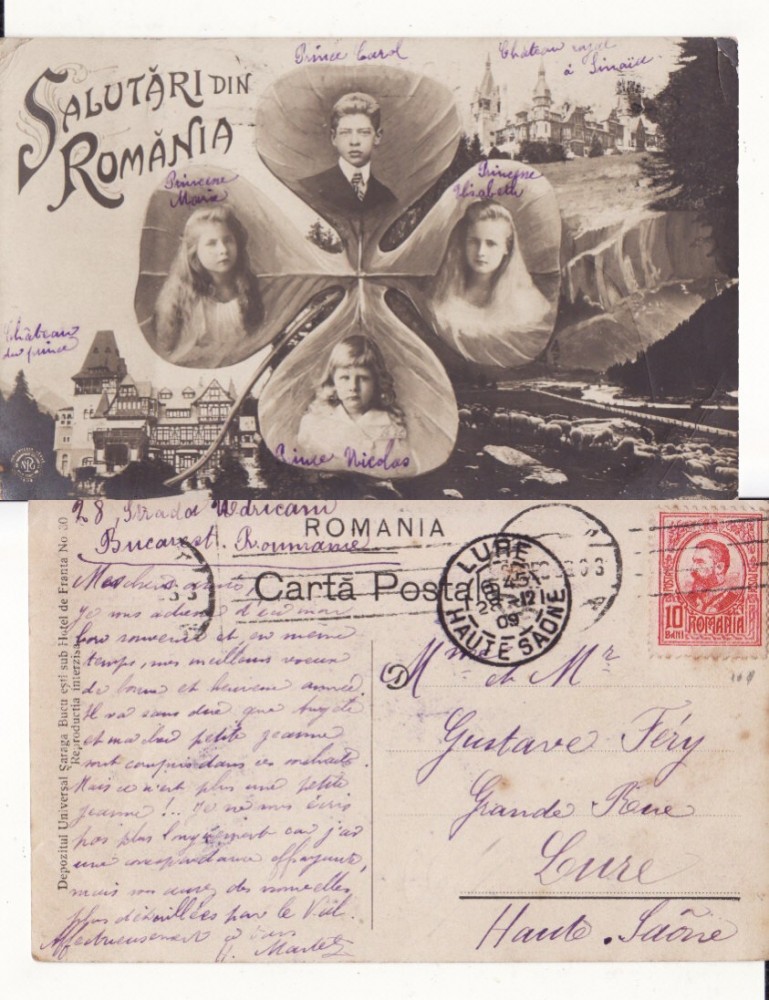 SALUTĂRI DIN
ROMÂNIA
Prince Carol
Château royal
à Sinaïa
Princesse
Marie
Princesse
Elisabeth
Château
du prince
Prince Nicolas
28, Strada
Bucarest. Roumanie
ROMANIA
Cartă Poștală
LURE
28 12
09
HAUTE SAÔNE
10
BANI
ROMANIA
Depozitul Universal Șaraga București sub Hotel de Franta No 30
Reproductia interzisa
Mes chers amis,
Je vous adresse d'ici mon
bon souvenir et en même
temps, mes meilleurs voeux
de bonne et heureuse année.
Il va sans dire que
et ma petite Jeanne
sont compris dans ces souhaits.
Mais ce n'est plus une petite
Jeanne !.. Je ne vous écris
pas plus longuement car j'ai
une correspondance effrayante,
mais vous aurez des nouvelles
plus détaillées par le
Affectueusement à vous
Mme et Mr
Gustave Féry
Grande Rue
Lure
Haute-Saône